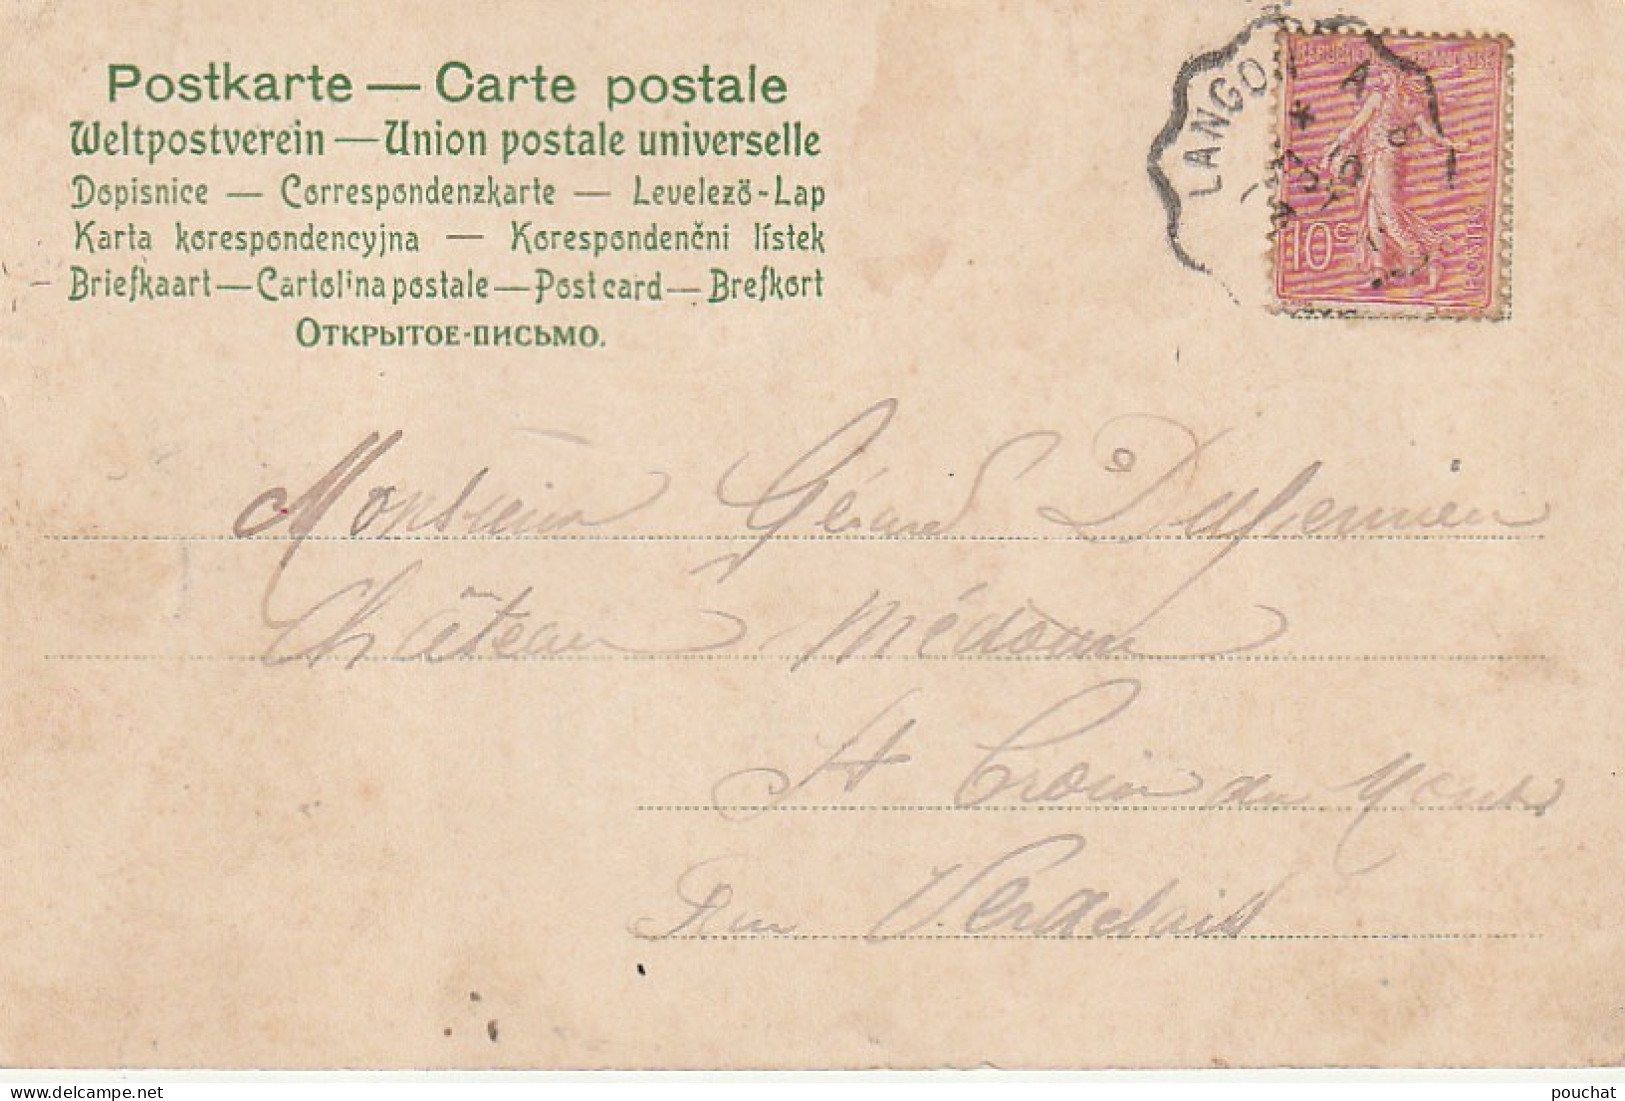 Postkarte — Carte postale
Weltpostverein — Union postale universelle
Dopisnice — Correspondenzkarte — Levelező-Lap
Karta korespondencyjna — Korespondenční lístek
Briefkaart — Cartolina postale — Post card — Brefkort
ОТКРЫТОЕ-ПИСЬМО.
LANGON A
REPUBLIQUE FRANÇAISE
10c
POSTES
Monsieur Gérard
Château Médouc
St Croix du Mont
Par Verdelais
pouchat